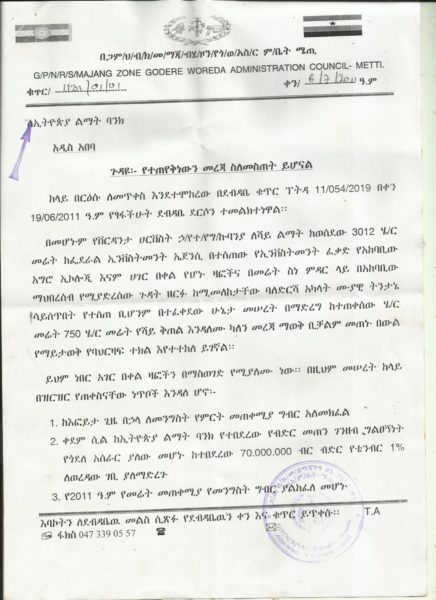 በጋም/ህ/ብ/ክ/መ/ማጃ/ብሄ/ዞን/የጎ/ወ/አስ/ር ም/ቤት ሜጢ
G/P/N/R/S/MAJANG ZONE GODERE WOREDA ADMINISTRATION COUNCIL- METTI.
ቁጥር/
ቀን/ 6/7/2011 ዓ.ም
ለኢትዮጵያ ልማት ባንክ
አዲስ አበባ
ጉዳዩ፡- የተጠየቅነውን መረጃ ስለመስጠት ይሆናል
ከላይ በርዕሱ ለመጥቀስ እንደተሞከረው በደብዳቤ ቁጥር ፕትዳ 11/054/2019 በቀን
19/06/2011 ዓ.ም የፃፋችሁት ደብዳቤ ደርሶን ተመልክተነዋል።
በመሆኑም የቨርዳንታ ሀርቨስት ኃ/የተ/የግ/ኩባንያ ለሻይ ልማት ከወሰደው 3012 ሄ/ር
መሬት ከፌደራል ኢንቨስትመንት ኤጀንሲ በተሰጠው የኢንቨስትመንት ፈቃድ የአከባቢው
አግሮ ኢኮሎጂ እናም ሀገር በቀል የሆኑ ዛፎችና በመሬት ስነ ምዳር ላይ በአከባቢው
ማህበረሰብ የሚያደርሰው ጉዳት ዘርፉ ከሚመለከታቸው ባለድርሻ አካላት ሙያዊ ትንታኔ
ሳይሰጥበት የተሰጠ ቢሆንም በተፈቀደው ሁኔታ መሠረት በማድረግ ከተጠቀሰው ሄ/ር
መሬት 750 ሄ/ር መሬት የሻይ ቅጠል እንዳለሙ ካለን መረጃ ማወቅ ቢቻልም መጠኑ በውል
የማይታወቅ የባህርዛፍ ተክል እየተተከለ ይገኛል።
ይህም ነበር አገር በቀል ዛፎችን በማስወገድ የሚያለሙ ነው። በዚህም መሠረት ከላይ
በዝርዝር የጠቀስናቸው ነጥቦች እንዳለ ሆኖ፡-
1. ከእፎይታ ጊዜ በኃላ ለመንግስት የምርት መጠቀሚያ ግብር አለመክፈል
2. ቀደም ሲል ከኢትዮጵያ ልማት ባንክ የተበደረው የብድር መጠን ገንዘብ ግልፀኝነት
የጎደለ አሰራር ያለው መሆኑ ከተበደረው 70.000.000 ብር ብድር የቴንብር 1%
ለወረዳው ገቢ ያለማድረጉ
3. የ2011 ዓ.ም የመሬት መጠቀሚያ የመንግስት ግብር ያልከፈለ መሆኑ
እባኮትን ለደብዳቤዉ መልስ ሲጽፉ የደብዳቤዉን ቀን እና ቁጥር ይጥቀሱ።
T.A
ፋክስ 047 339 05 57